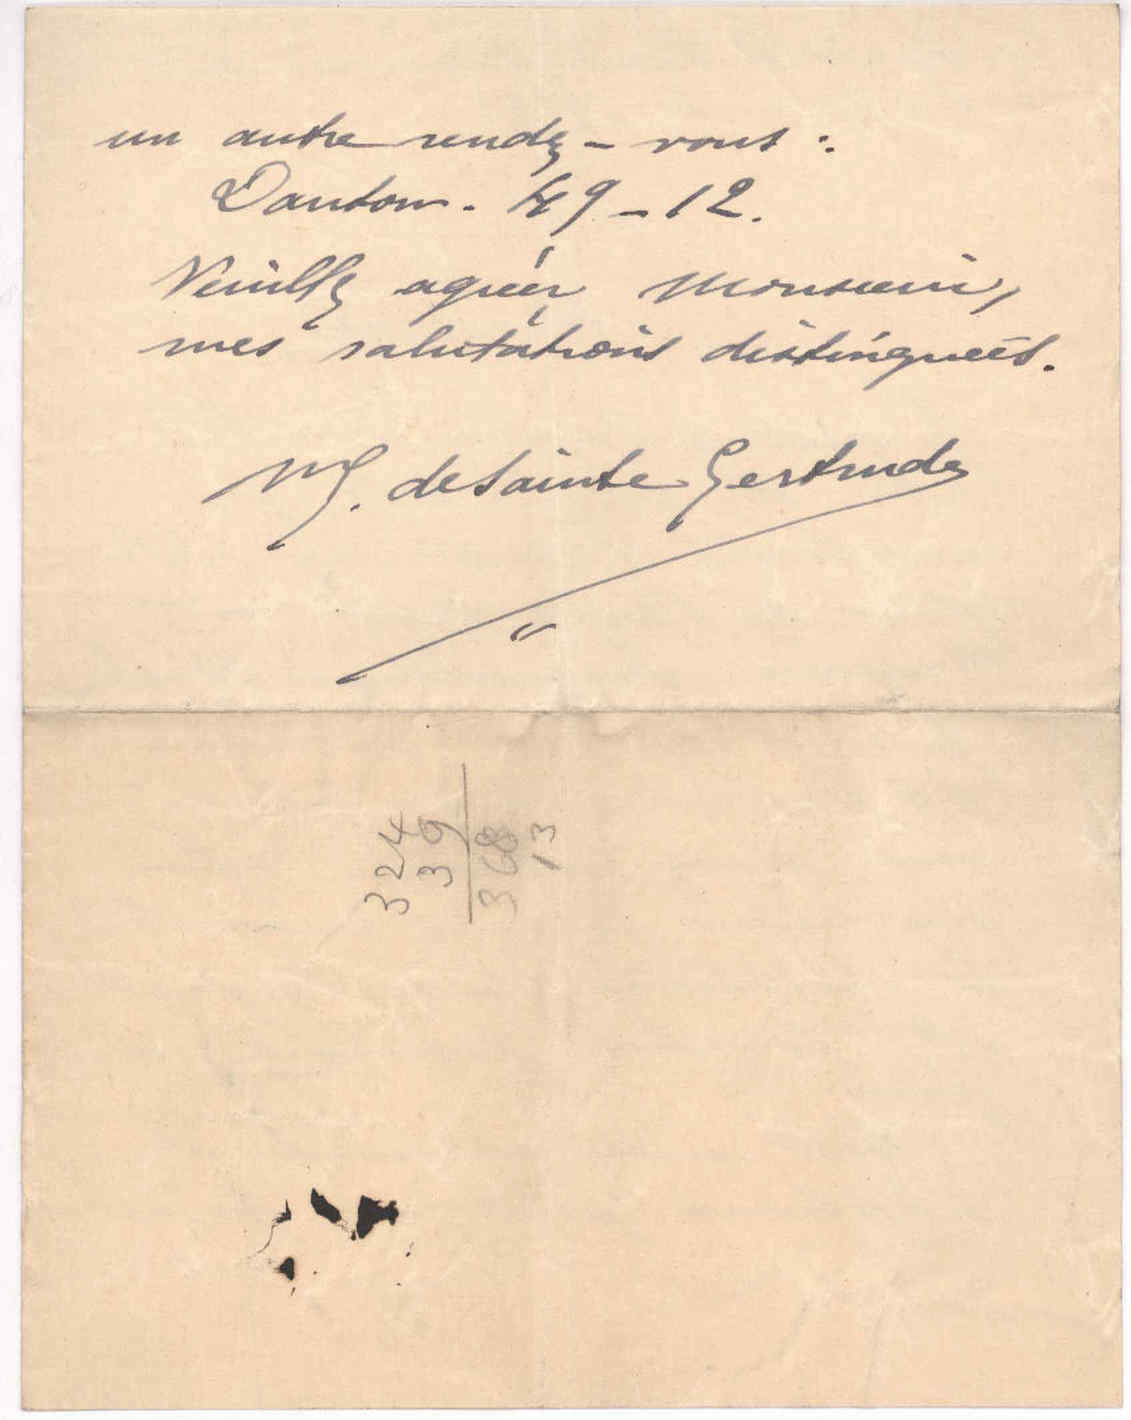 un autre rendez-vous :
Danton. 49-12.
Veuillez agréer Monsieur,
mes salutations distinguées.
M. de Sainte Gertrude
324
39
368
13